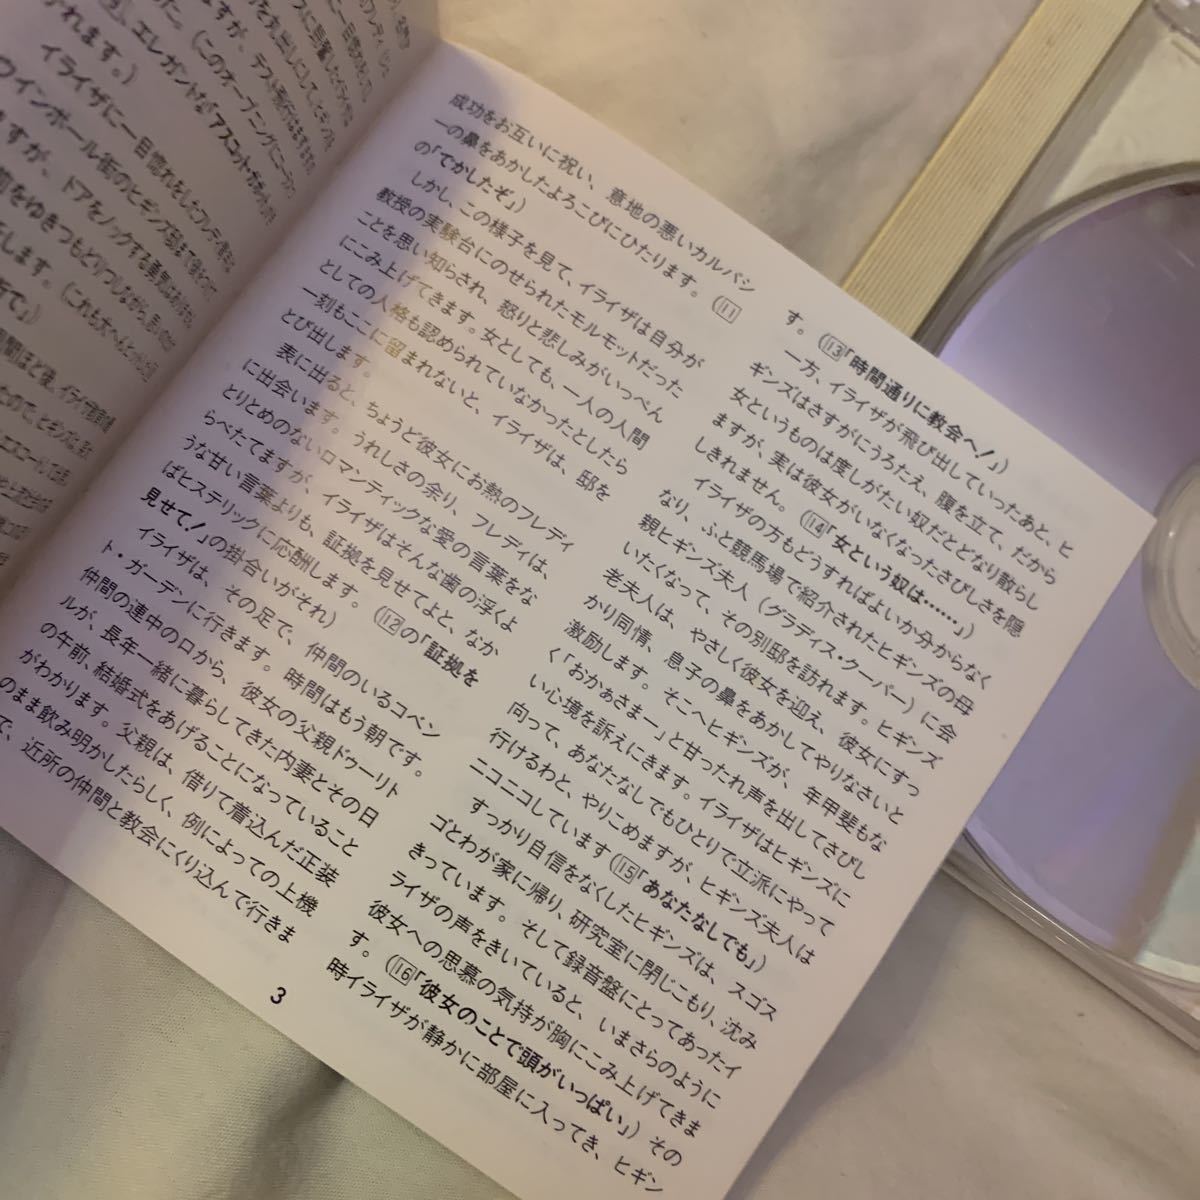 れます。)
イライザに一目惚れをしたフレディ
ウインポール街のヒギンズ邸まで
すが、ドアをノックする勇気は
成功をお互いに祝い、意地の悪いカルパシ
ーの鼻をあかしたよろこびにひたります。(11
の「でかしたぞ」)
しかし、この様子を見て、イライザは自分が
教授の実験台にのせられたモルモットだった
ことを思い知らされ、怒りと悲しみがいっぺん
にこみ上げてきます。女としても、一人の人間
としての人格も認められていなかったとしたら
一刻もここに留まれないと、イライザは、邸を
とび出します。
表に出ると、ちょうど彼女にお熱のフレディ
に出会います。うれしさの余り、フレディは、
とりとめのないロマンティックな愛の言葉をな
らべたてますが、イライザはそんな歯の浮くよ
うな甘い言葉よりも、証拠を見せてよと、なか
ばヒステリックに応酬します。(12の「証拠を
見せて!」の掛合いがそれ)
イライザは、その足で、仲間のいるコベン
ト・ガーデンに行きます。時間はもう朝です。
仲間の連中の口から、彼女の父親ドゥーリト
ルが、長年一緒に暮らしてきた内妻とその日
の午前、結婚式をあげることになっていること
がわかります。父親は、借りて着込んだ正装
のまま飲み明かしたらしく、例によっての上機
で、近所の仲間と教会にくり込んで行きま
す。(13「時間通りに教会へ!」)
一方、イライザが飛び出していったあと、ヒ
ギンズはさすがにうろたえ、腹を立て、だから
女というものは度しがたい奴だとどなり散らし
ますが、実は彼女がいなくなったさびしさを隠
しきれません。(14「女という奴は……」)
イライザの方もどうすればよいか分からなく
なり、ふと競馬場で紹介されたヒギンズの母
親ヒギンズ夫人(グラディス・クーパー)に会
いたくなって、その別邸を訪れます。ヒギンズ
老夫人は、やさしく彼女を迎え、彼女にすっ
かり同情、息子の鼻をあかしてやりなさいと
激励します。そこへヒギンズが、年甲斐もな
く「おかぁさまー」と甘ったれ声を出してさびし
い心境を訴えにきます。イライザはヒギンズに
向って、あなたなしでもひとりで立派にやって
行けるわと、やりこめますが、ヒギンズ夫人は
ニコニコしています(15「あなたなしでも」)
すっかり自信をなくしたヒギンズは、スゴス
ゴとわが家に帰り、研究室に閉じこもり、沈み
きっています。そして録音盤にとってあったイ
ライザの声をきいていると、いまさらのように
彼女への思慕の気持が胸にこみ上げてきま
す。(16「彼女のことで頭がいっぱい」)その
時イライザが静かに部屋に入ってき、ヒギン
3